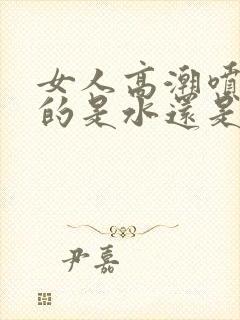 女人高潮噴
的是水還是
尹嘉